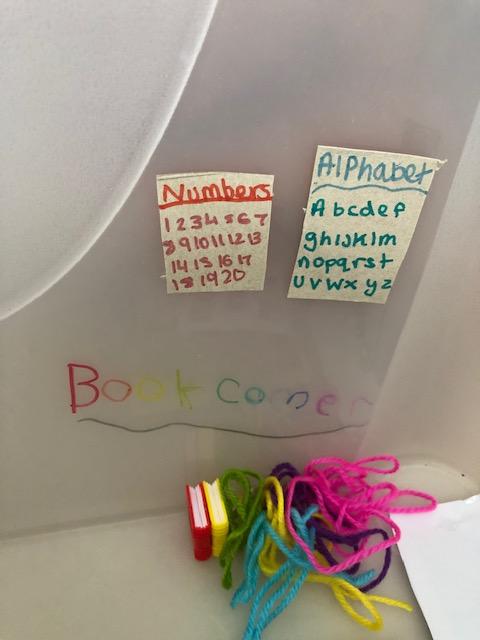 Numbers
1 2 3 4 5 6 7
8 9 10 11 12 13
14 15 16 17
18 19 20
Alphabet
A b c d e f
g h i j k l m
n o p q r s t
u v w x y z
Book corner